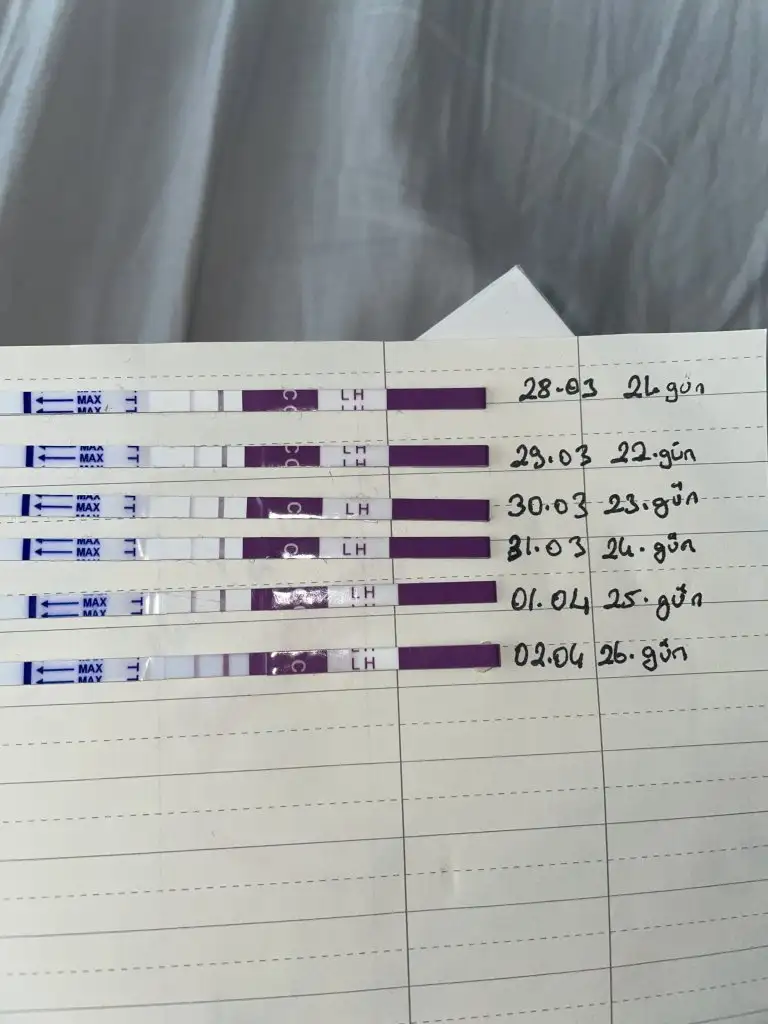 MAX C LH 28.03 21.gün
MAX C LH 29.03 22.gün
MAX C LH 30.03 23.gün
MAX C LH 31.03 24.gün
MAX LH 01.04 25.gün
MAX C LH 02.04 26.gün